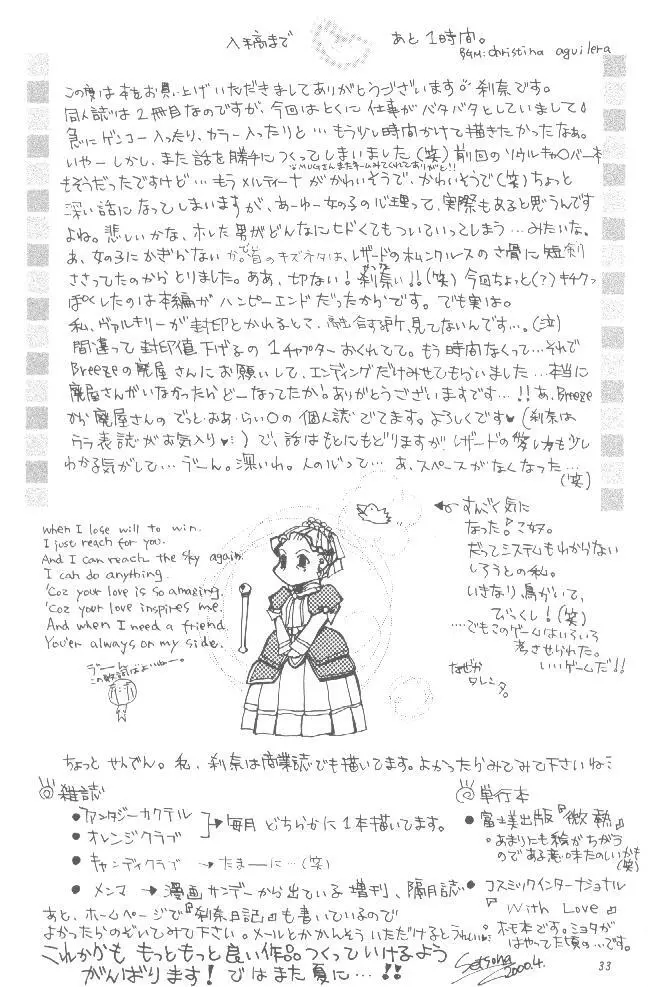 入稿まで
あと1時間。
BGM: christina aguilera
この度は本をお買い上げいただきましてありがとうございます。刹奈です。
同人誌は2冊目なのですが、今回はとくに仕事がバタバタとしていまして
急にゲンコー入ったり、カラー入ったりと…もう少し時間かけて描きたかったなあ。
いやーしかし、また話を勝手につくってしまいました(笑)前回のソウルキャ〇バー本
もそうだったですけど…もうメルティーナがかわいそうで、かわいそうで(笑)ちょっと
深い話になってしまいますが、あーゆー女の子の心理って、実際もあると思うんです
よね。悲しいかな、ホレた男がどんなにヒドくてもついていってしまう…みたいな。
あ、女の子にかぎらないか。首のキズネタは、レザードのホムンクルスの骨に短剣
ささってたのからとりました。ああ、切ない!刹奈い!!(笑)今回ちょっと(?)キチクっ
ぽくしたのは本編がハッピーエンドだったからです。でも実は。
私、ヴァルキリーが封印とかれるとこ、融合する所、見てないんです…。(泣)
間違って封印値下げるの1チャプターおくれてて。もう時間なくって…それで
Breezeの廃屋さんにお願いして、エンディングだけみせてもらいました…本当に
廃屋さんがいなかったらどーなってたか!ありがとうございますです…!!あ、Breeze
から廃屋さんのでっど・おあ・らい〇の個人誌でてます。よろしくです♥(刹奈は
ウラ表紙がお気入り♥)で、話はもとにもどりますがレザードの愛し方も少し
わかる気がして…うーん。深いわ。人の心って…あ、スペースがなくなった…
(笑)
when I lose will to win.
I just reach for you.
And I can reach the sky again.
I can do anything.
'Coz your love is so amazing.
'Coz your love inspires me.
And when I need a friend
You'er always on my side.
この歌詞はよいねー。
←すんごく気に
なった。
だってシステムもわからない
しろうとの私。
いきなり鳥がいて、
びっくし!(笑)
…でもこのゲームはいろいろ
考させられた。
いいゲームだ!!
なぜか
ちょっとせんでん。私、刹奈は商業誌でも描いてます。よかったらみてみて下さいね
雑誌
●ファンタジーカクテル
●オレンジクラブ
→毎月どちらかに1本描いてます。
●キャンディクラブ →たまーに…(笑)
●メンマ →漫画サンデーから出ている増刊、隔月誌
単行本
●富士美出版『微熱』
あまりにも絵がちがう
のである意味たのしいかも
(笑)
●コスミックインターナショナル
『With Love』
ホモ本です。ミヨタが
はやってた頃の…です。
あと、ホームページで『刹奈日記』も書いているので
よかったらのぞいてみて下さい。メールとかかんそういただけるとうれしい
これからも もっともっと良い作品つくっていけるよう
がんばります!ではまた夏に…!!
Setsuna
2000.4.
33